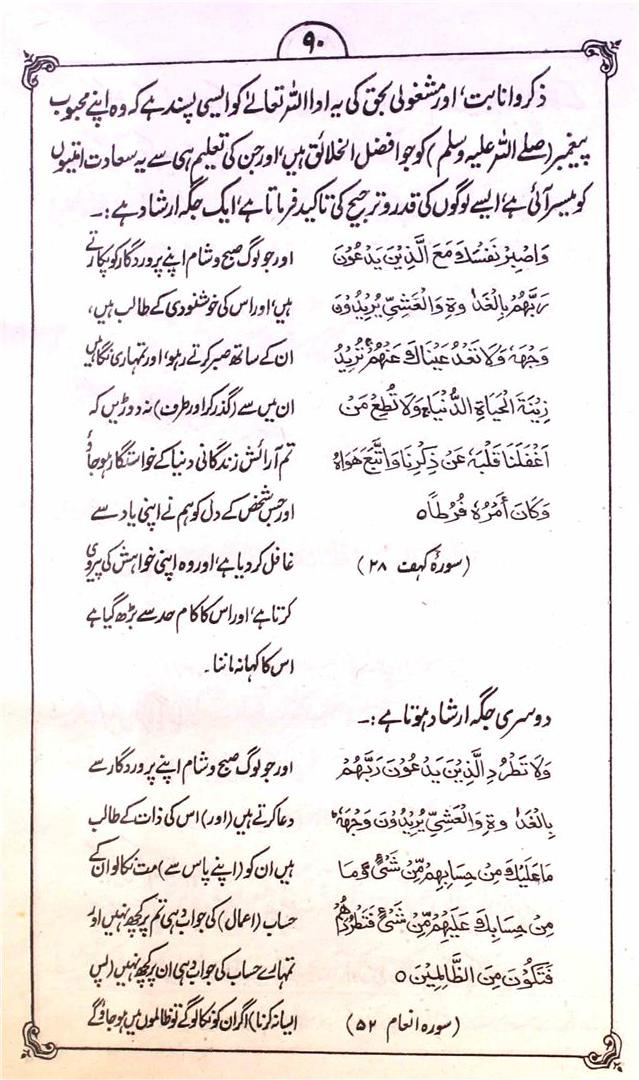 ۹۰
ذکر وانابت، اور مشغولی بحق کی یہ ادا اللہ تعالےٰ کو ایسی پسند ہے کہ وہ اپنے محبوب
پیغمبر (صلے اللہ علیہ وسلم) کو جو افضل الخلائق ہیں، اور جن کی تعلیم ہی سے یہ سعادت امتیوں
کو میسر آئی ہے، ایسے لوگوں کی قدر و ترجیح کی تاکید فرماتا ہے، ایک جگہ ارشاد ہے:۔
وَاصْبِرْ نَفْسَكَ مَعَ الَّذِينَ يَدْعُوْنَ
رَبَّهُمْ بِالْغَدٰوةِ وَالْعَشِيِّ يُرِيْدُوْنَ
وَجْهَهٗ وَلَا تَعْدُ عَيْنَاكَ عَنْهُمْ تُرِيْدُ
زِيْنَةَ الْحَيَاةِ الدُّنْيَا وَلَا تُطِعْ مَنْ
اَغْفَلْنَا قَلْبَهٗ عَنْ ذِكْرِنَا وَاتَّبَعَ هَوَاهُ
وَكَانَ أَمْرُهٗ فُرُطًا ٥
(سورۂ کہف ۲۸)
اور جو لوگ صبح و شام اپنے پروردگار کو پکارتے
ہیں، اور اس کی خوشنودی کے طالب ہیں،
ان کے ساتھ صبر کرتے رہو، اور تمہاری نگاہیں
ان میں سے (گذر کر اور طرف) نہ دوڑیں کہ
تم آرائش زندگانی دنیا کے خواستگار ہو جاؤ
اور جس شخص کے دل کو ہم نے اپنی یاد سے
غافل کر دیا ہے، اور وہ اپنی خواہش کی پیروی
کرتا ہے، اور اس کا کام حد سے بڑھ گیا ہے
اس کا کہا نہ ماننا۔
دوسری جگہ ارشاد ہوتا ہے:۔
وَلَا تَطْرُدِ الَّذِيْنَ يَدْعُوْنَ رَبَّهُمْ
بِالْغَدٰوةِ وَالْعَشِيِّ يُرِيْدُوْنَ وَجْهَهٗ
مَا عَلَيْكَ مِنْ حِسَابِهِمْ مِّنْ شَيْءٍ وَّمَا
مِنْ حِسَابِكَ عَلَيْهِمْ مِّنْ شَيْءٍ فَتَطْرُدَهُمْ
فَتَكُوْنَ مِنَ الظَّالِمِيْنَ ٥
(سورہ انعام ۵۲)
اور جو لوگ صبح و شام اپنے پروردگار سے
دعا کرتے ہیں (اور) اس کی ذات کے طالب
ہیں ان کو (اپنے پاس سے) مت نکالو ان کے
حساب (اعمال) کی جواب دہی تم پر کچھ نہیں اور
تمہارے حساب کی جواب دہی ان پر کچھ نہیں (پس
ایسا نہ کرنا) اگر ان کو نکالو گے تو ظالموں میں ہو جاؤ گے